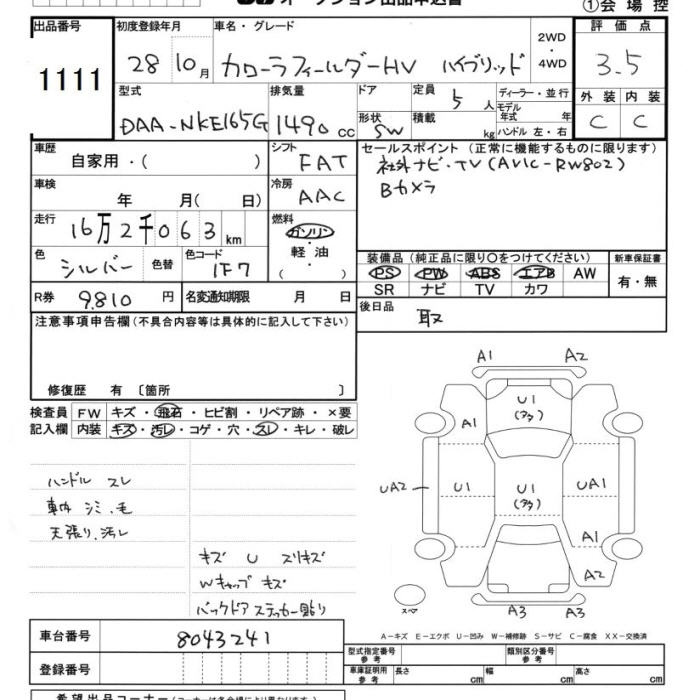 オークション出品申込書
①会場控
出品番号 初度登録年月 車名・グレード 評価点
1111 28 10月 カローラフィールダーHV ハイブリッド 2WD・4WD 3.5
型式 排気量 ドア 定員 5人 ディーラー・並行 外装 内装
DAA-NKE165G 1490cc 形状 SW 積載 kg モデル年式 年 C C
ハンドル 左・右
車歴 自家用・( ) シフト FAT セールスポイント (正常に機能するものに限ります)
社外ナビ・TV(AVIC-RW802)
車検 年 月( 日) 冷房 AAC Bカメラ
走行 16万2千063km 燃料 ガソリン・軽油 ( )
色 シルバー 色替 色コード 1F7
装備品 (純正品に限り○をつけてください) 新車保証書
PS PW ABS エアB AW 有・無
SR ナビ TV カワ
R券 9,810円 名変通知期限 月 日
後日品 取
注意事項申告欄 (不具合内容等は具体的に記入して下さい)
修復歴 有 〔箇所 〕
検査員 FW キズ・飛石・ヒビ割・リペア跡・×要
記入欄 内装 キズ・汚レ・コゲ・穴・スレ・キレ・破レ
ハンドル スレ
車内 シミ、毛
天張り、汚レ
キズ U スリキズ
Wキャップ キズ
バックドア ステッカー貼り
A1 A2
U1
(アタ)
A1
UA2 U1 U1 UA1
(アタ)
A1
A2
スペア A3 A3
A-キズ E-エクボ U-凹み W-補修跡 S-サビ C-腐食 XX-交換済
車台番号 8043241
登録番号
型式指定番号 参考 類別区分番号 参考
車庫証明用 参考 長さ cm 幅 cm 高さ cm
希望出品コーナー